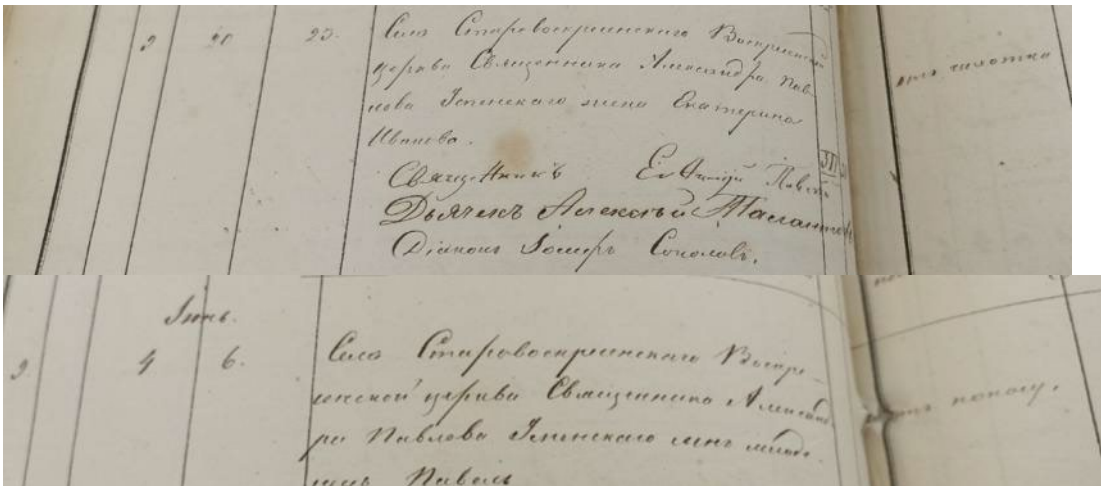 2 20 23. Села Старовоскресенскаго Воскресенской
церкви Священника Александра Пав-
лова Успенскаго жена Екатерина
Иванова.
отъ чахотки
Священникъ Евфимій
Дьячекъ Алексѣй Талантовъ
Діаконъ Іосифъ Соколовъ.
Іюнь.
2 4 6. Села Старовоскресенскаго Воскре-
сенской церкви Священника Александ-
ра Павлова Успенскаго сынъ младе-
нецъ Павелъ
поносу.